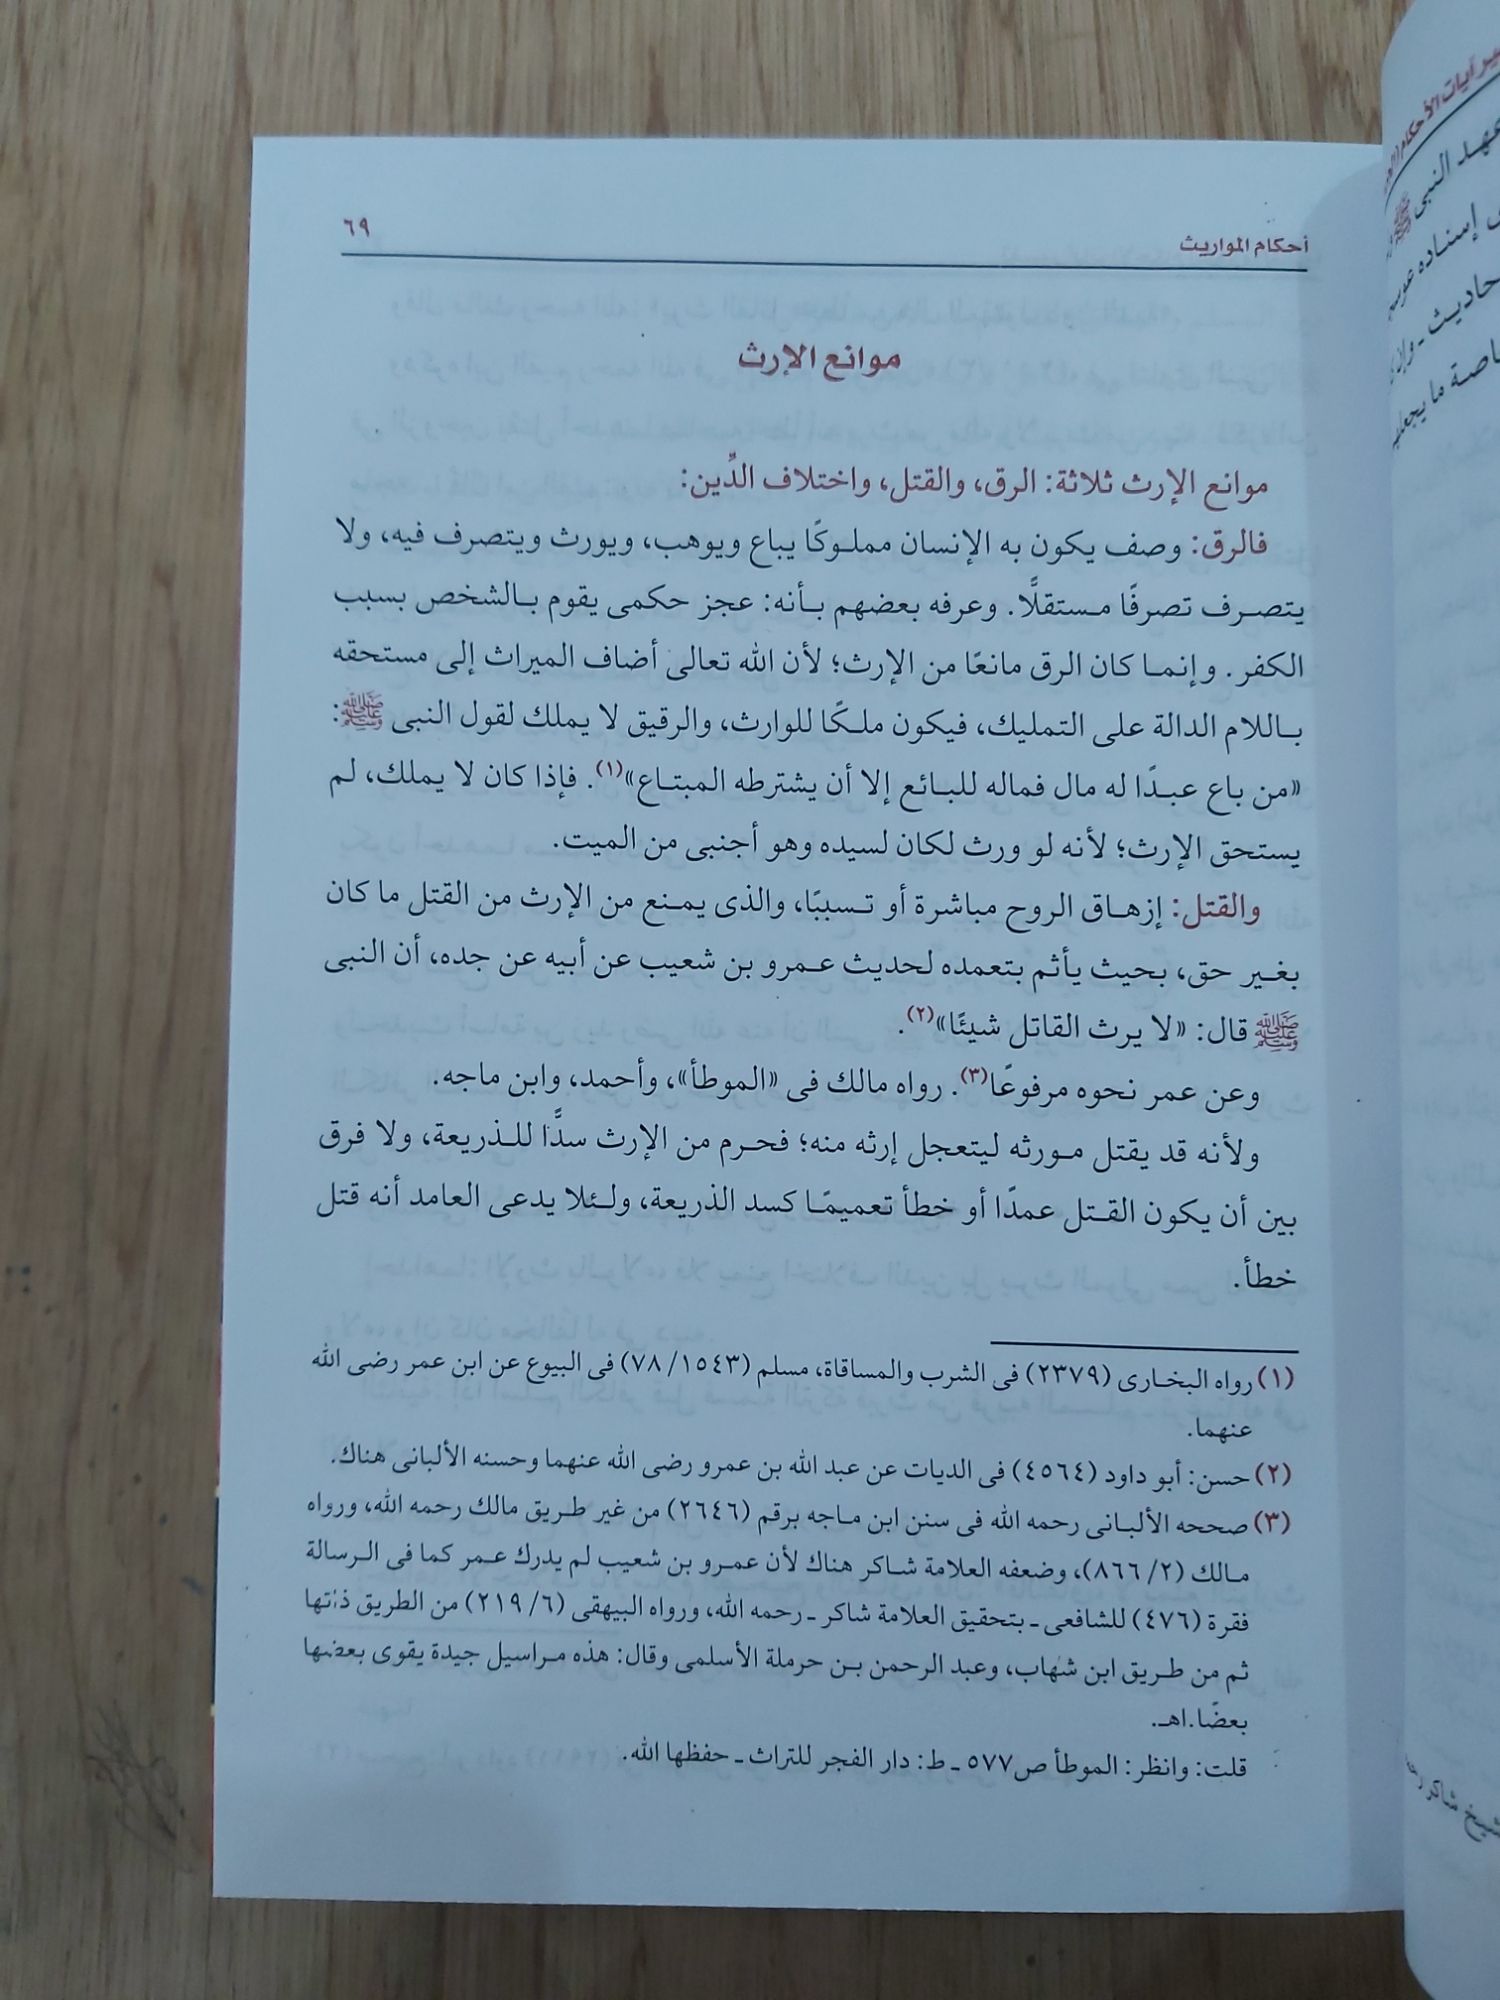 أحكام المواريث
٦٩
موانع الإرث
موانع الإرث ثلاثة: الرق، والقتل، واختلاف الدِّين:
فالرق: وصف يكون به الإنسان مملوكًا يباع ويوهب، ويورث ويتصرف فيه، ولا
يتصرف تصرفًا مستقلًّا. وعرفه بعضهم بأنه: عجز حكمى يقوم بالشخص بسبب
الكفر. وإنما كان الرق مانعًا من الإرث؛ لأن الله تعالى أضاف الميراث إلى مستحقه
باللام الدالة على التمليك، فيكون ملكًا للوارث، والرقيق لا يملك لقول النبى ﷺ:
«من باع عبدًا له مال فماله للبائع إلا أن يشترطه المبتاع»(١). فإذا كان لا يملك، لم
يستحق الإرث؛ لأنه لو ورث لكان لسيده وهو أجنبى من الميت.
والقتل: إزهاق الروح مباشرة أو تسببًا، والذى يمنع من الإرث من القتل ما كان
بغير حق، بحيث يأثم بتعمده لحديث عمرو بن شعيب عن أبيه عن جده، أن النبى
ﷺ قال: «لا يرث القاتل شيئًا»(٢).
وعن عمر نحوه مرفوعًا(٣). رواه مالك فى «الموطأ»، وأحمد، وابن ماجه.
ولأنه قد يقتل مورثه ليتعجل إرثه منه؛ فحرم من الإرث سدًّا للذريعة، ولا فرق
بين أن يكون القتل عمدًا أو خطأ تعميمًا كسد الذريعة، ولئلا يدعى العامد أنه قتل
خطأ.
(١) رواه البخارى (٢٣٧٩) فى الشرب والمساقاة، مسلم (١٥٤٣/ ٧٨) فى البيوع عن ابن عمر رضى الله
عنهما.
(٢) حسن: أبو داود (٤٥٦٤) فى الديات عن عبد الله بن عمرو رضى الله عنهما وحسنه الألبانى هناك.
(٣) صححه الألبانى رحمه الله فى سنن ابن ماجه برقم (٢٦٤٦) من غير طريق مالك رحمه الله، ورواه
مالك (٢/ ٨٦٦)، وضعفه العلامة شاكر هناك لأن عمرو بن شعيب لم يدرك عمر كما فى الرسالة
فقرة (٤٧٦) للشافعى ـ بتحقيق العلامة شاكر ـ رحمه الله، ورواه البيهقى (٦/ ٢١٩) من الطريق ذاتها
ثم من طريق ابن شهاب، وعبد الرحمن بن حرملة الأسلمى وقال: هذه مراسيل جيدة يقوى بعضها
بعضًا.اهـ.
قلت: وانظر: الموطأ ص٥٧٧ ـ ط: دار الفجر للتراث ـ حفظها الله.
آيات الأحكام
عهد النبى ﷺ
إسناده
ما يجعل
شاكر